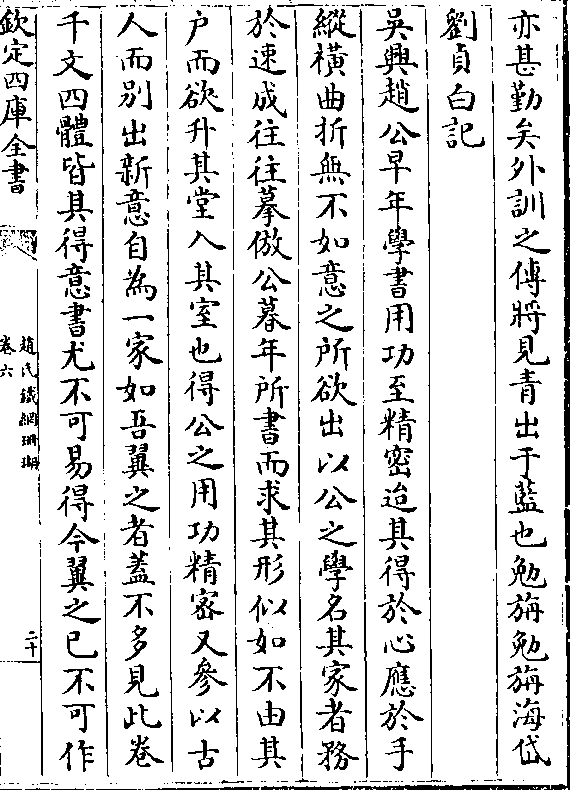 亦甚勤矣外訓之傅將見青出于藍也勉旃勉旃海岱
劉貞白記
吳興趙公早年學書用功至精密迨其得於心應於手
縱横曲折無不如意之所欲出以公之學名其家者務
於速成往往摹倣公暮年所書而求其形似如不由其
户而欲升其堂入其室也得公之用功精密又參以古
人而别出新意自為一家如吾翼之者蓋不多見此卷
千文四體皆其得意書尤不可易得今翼之已不可作
欽定四庫全書
趙氏鐵網珊瑚
卷六
二十